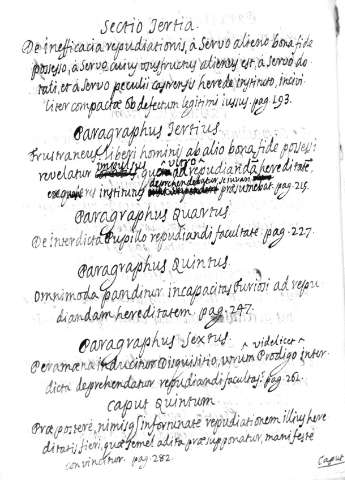 Sectio Tertia.
De inefficacia repudiationis, à Servo alieno bona fide
possesso, à Servo cuius constructus alienus est, à Servo do
tali, et à Servo peculii castrensis herede instituto, inciui
liter compactæ ob defectum legitimi iussus. pag. 193.
Paragraphus Tertius.
Frustraneus liberi hominis ab alio bona fide possessi
revelatur impulsus quo ad vtro repudiandã hereditatẽ,
institutus deprehendatur, se iuvare præsumebat. pag. 215.
Paragraphus Quartus
De interdicta Pupillo repudiandi facultate. pag. 227.
Paragraphus Quintus.
Omnimoda panditur incapacitas Furiosi ad repu
diandam hereditatem. pag. 247.
Paragraphus Sextus.
Peramæna inducitur Disquisitio, vtrum videlicet Prodigo inter
dicta deprehendatur repudiandi facultas? pag. 262.
Caput Quintum
Præposterè, nimisq; infortunatè repudiationem illius here
ditatis, fieri, quæ semel adita præsupponatur, manifestè
convincitur. pag. 282.
Caput